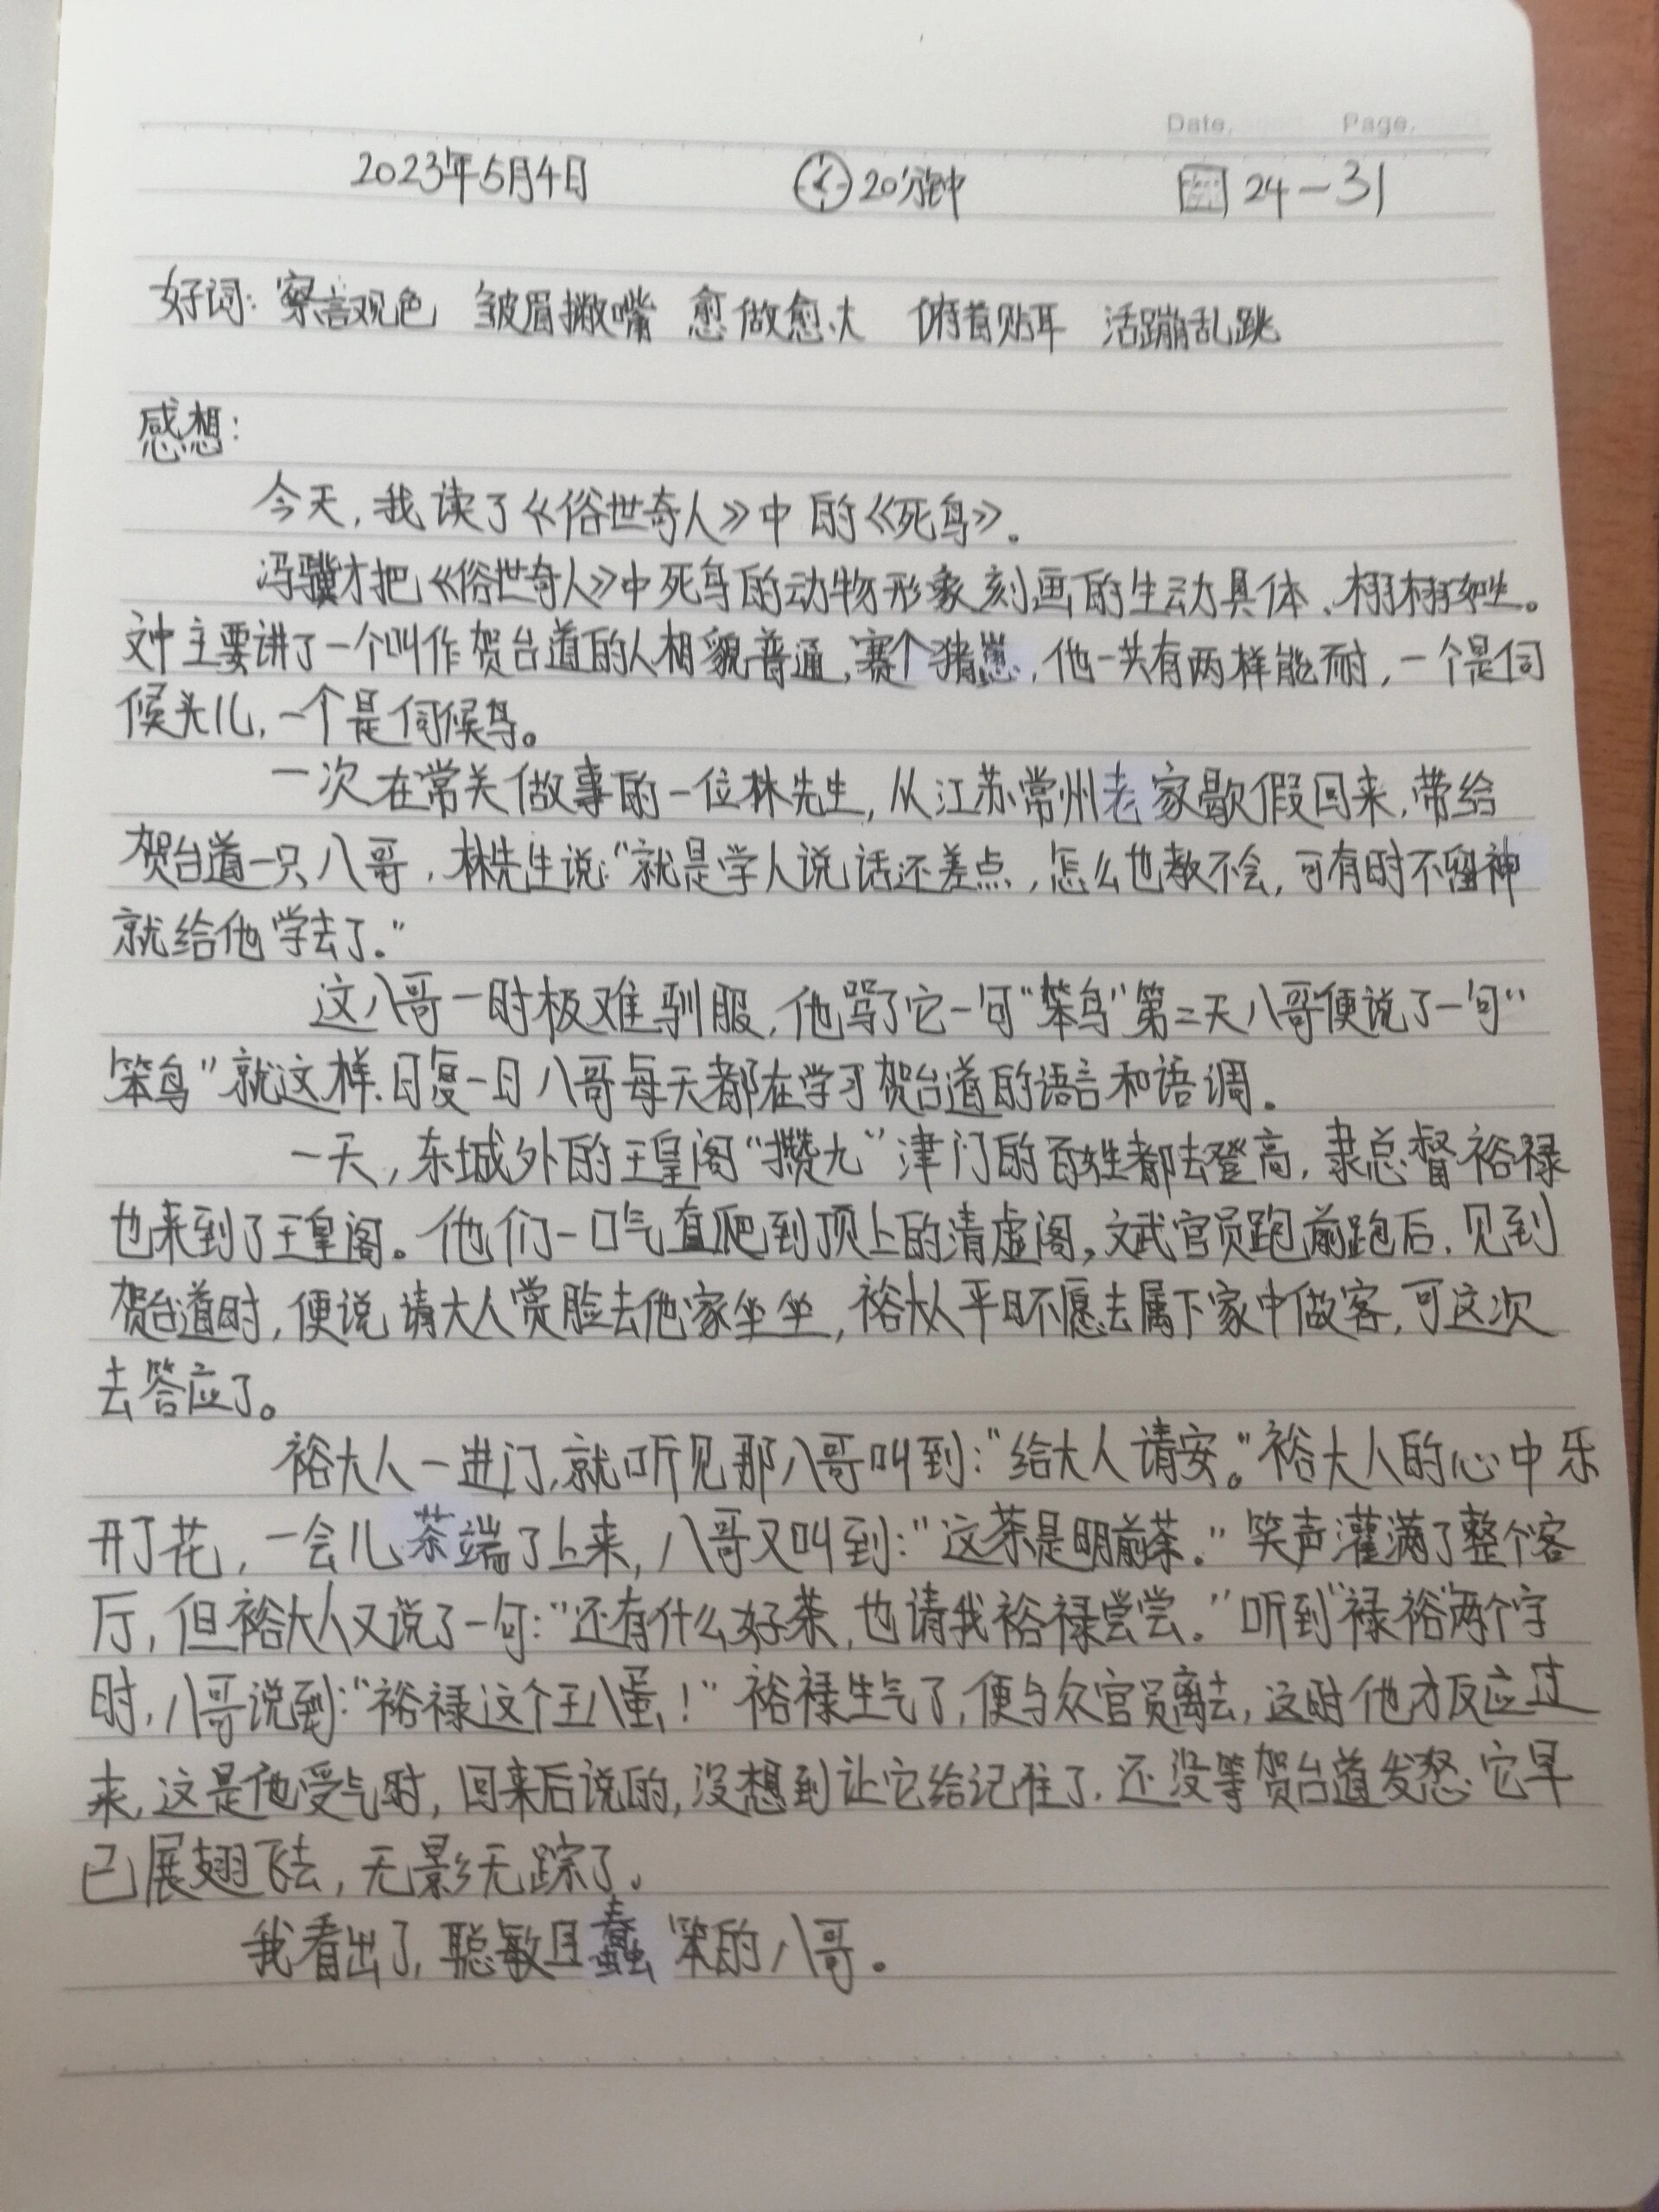 Date. Page.
2023年5月4日 20分钟 24－31
好词：察言观色 皱眉撇嘴 愈做愈大 俯首贴耳 活蹦乱跳
感想：
今天，我读了《俗世奇人》中的《死鸟》。
冯骥才把《俗世奇人》中死鸟的动物形象刻画的生动具体、栩栩如生。
文中主要讲了一个叫作贺台道的人相貌普通，赛个猪崽，他一共有两样能耐，一个是伺
候头儿，一个是伺候鸟。
一次在常关做事的一位林先生，从江苏常州老家歇假回来，带给
贺台道一只八哥，林先生说：“就是学人说话还差点，怎么也教不会，可有时不留神
就给他学去了。”
这八哥一时极难驯服，他骂了它一句“笨鸟”第二天八哥便说了一句“
笨鸟”就这样、日复一日八哥每天都在学习贺台道的语言和语调。
一天，东城外的王皇阁“攒九”津门的百姓都去登高，隶总督裕禄
也来到了王皇阁。他们一口气直爬到顶上的清虚阁，文武官员跑前跑后，见到
贺台道时，便说请大人赏脸去他家坐坐，裕大人平日不愿去属下家中做客，可这次
去答应了。
裕大人一进门，就听见那八哥叫到：“给大人请安。”裕大人的心中乐
开了花，一会儿茶端了上来，八哥又叫到：“这茶是明前茶。”笑声灌满了整个客
厅，但裕大人又说了一句：“还有什么好茶，也请我裕禄尝尝。”听到“禄裕”两个字
时，八哥说到：“裕禄这个王八蛋！”裕禄生气了，便与众官员离去，这时他才反应过
来，这是他受气时，回来后说的，没想到让它给记住了，还没等贺台道发怒、它早
已展翅飞去，无影无踪了。
我看出了，聪敏且蠢笨的八哥。